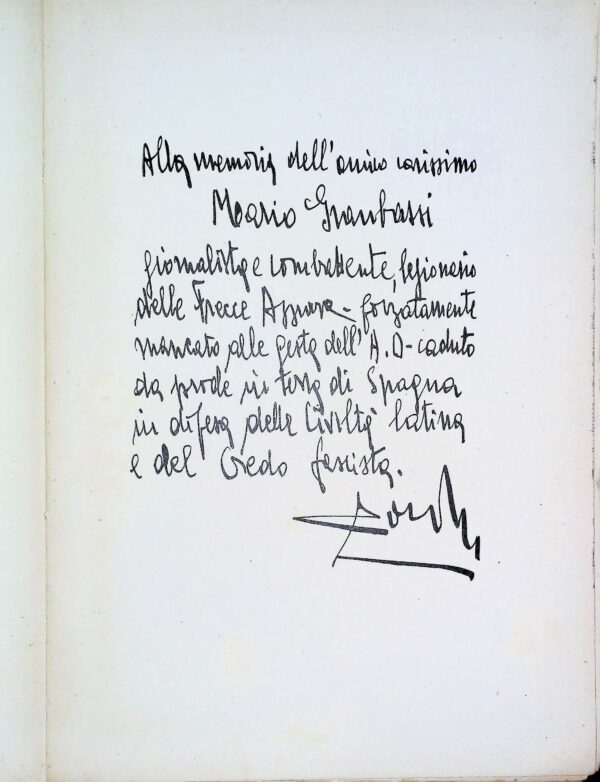 Alla memoria dell'amico carissimo
Mario Granbassi
giornalista e combattente, legionario
delle Frecce Azzurre - forzatamente
mancato alle gesta dell'A.O - caduto
da prode in terra di Spagna
in difesa della Civiltà latina
e del Credo fascista.